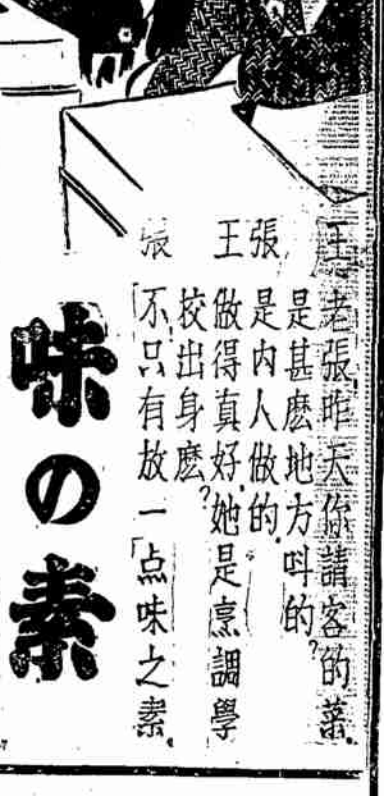 王 老張昨天你請客的菜。
是甚麽地方叫的?
張 是内人做的。
王 做得真好,她是烹調學
校出身麽?
張 「不,只有放一「点味之素。
味の素